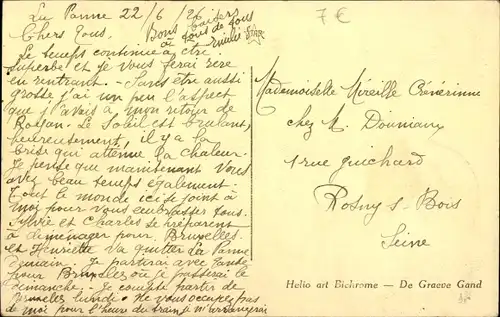 La Panne 22/6/26
Chers tous. Bons baisers
à tous de tous
Le temps continue à être
superbe et je vous ferai rire
en rentrant. - Sans être aussi
grosse j'ai un peu l'aspect
que j'avais à mon retour de
Le Soleil est brulant,
heureusement, il y a la
brise qui atténue la chaleur.
Je pense que maintenant vous
avez beau temps également -
Tout le monde ici se joint à
moi pour vous embrasser tous.
Sylvie et Charles se préparent
à déménager pour Bruxelles.
et Henriette va quitter La Panne
demain. Je partirai avec
pour Bruxelles où je passerai le
dimanche. - Je compte partir de
Bruxelles lundi. Ne vous occupez pas
de moi pour l'heure du train je m'arrangerai
7€
Mademoiselle Mireille
chez M. Douniaux
1 rue Guichard
Rosny s. Bois
Seine
Helio art Bichrome — De Graeve Gand